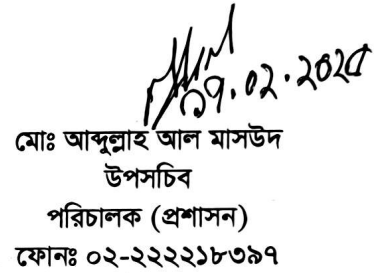 ১৭.০২.২০২৫
মোঃ আব্দুল্লাহ আল মাসউদ
উপসচিব
পরিচালক (প্রশাসন)
ফোনঃ ০২-২২২২১৮৩৯৭